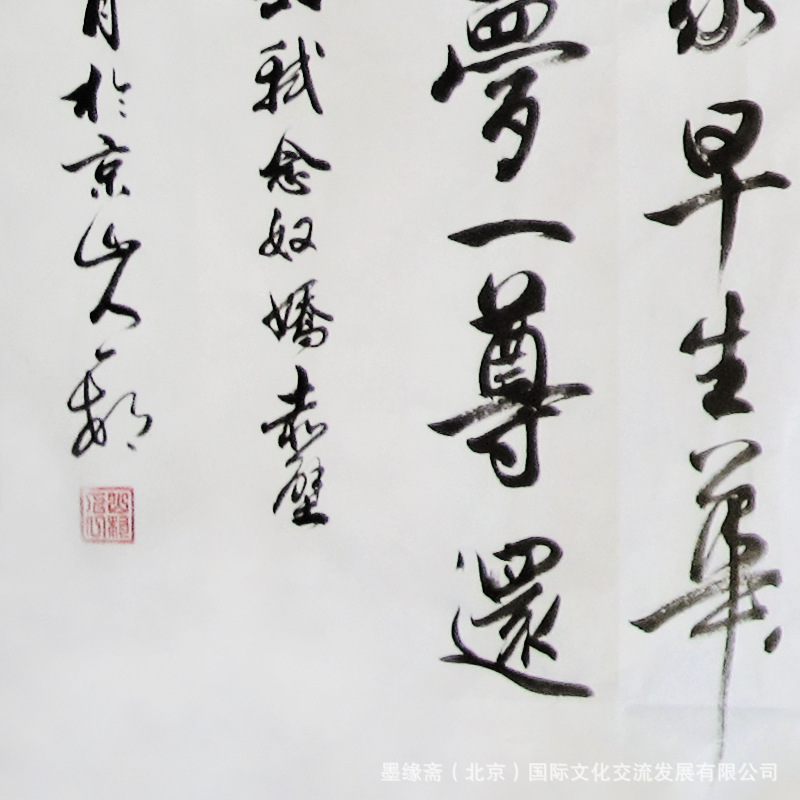 早生華
夢一尊還
軾念奴嬌赤壁
月於京山人
墨缘斋（北京）国际文化交流发展有限公司